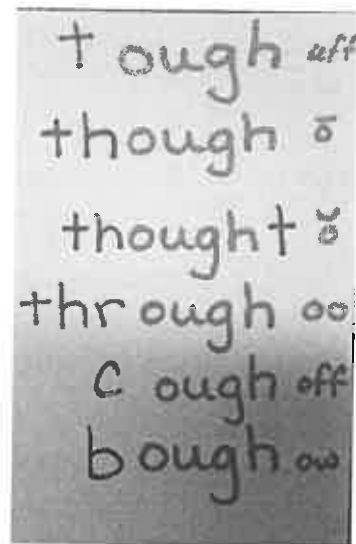 tough uff
though ō
thought ŏ
through oo
cough off
bough ow